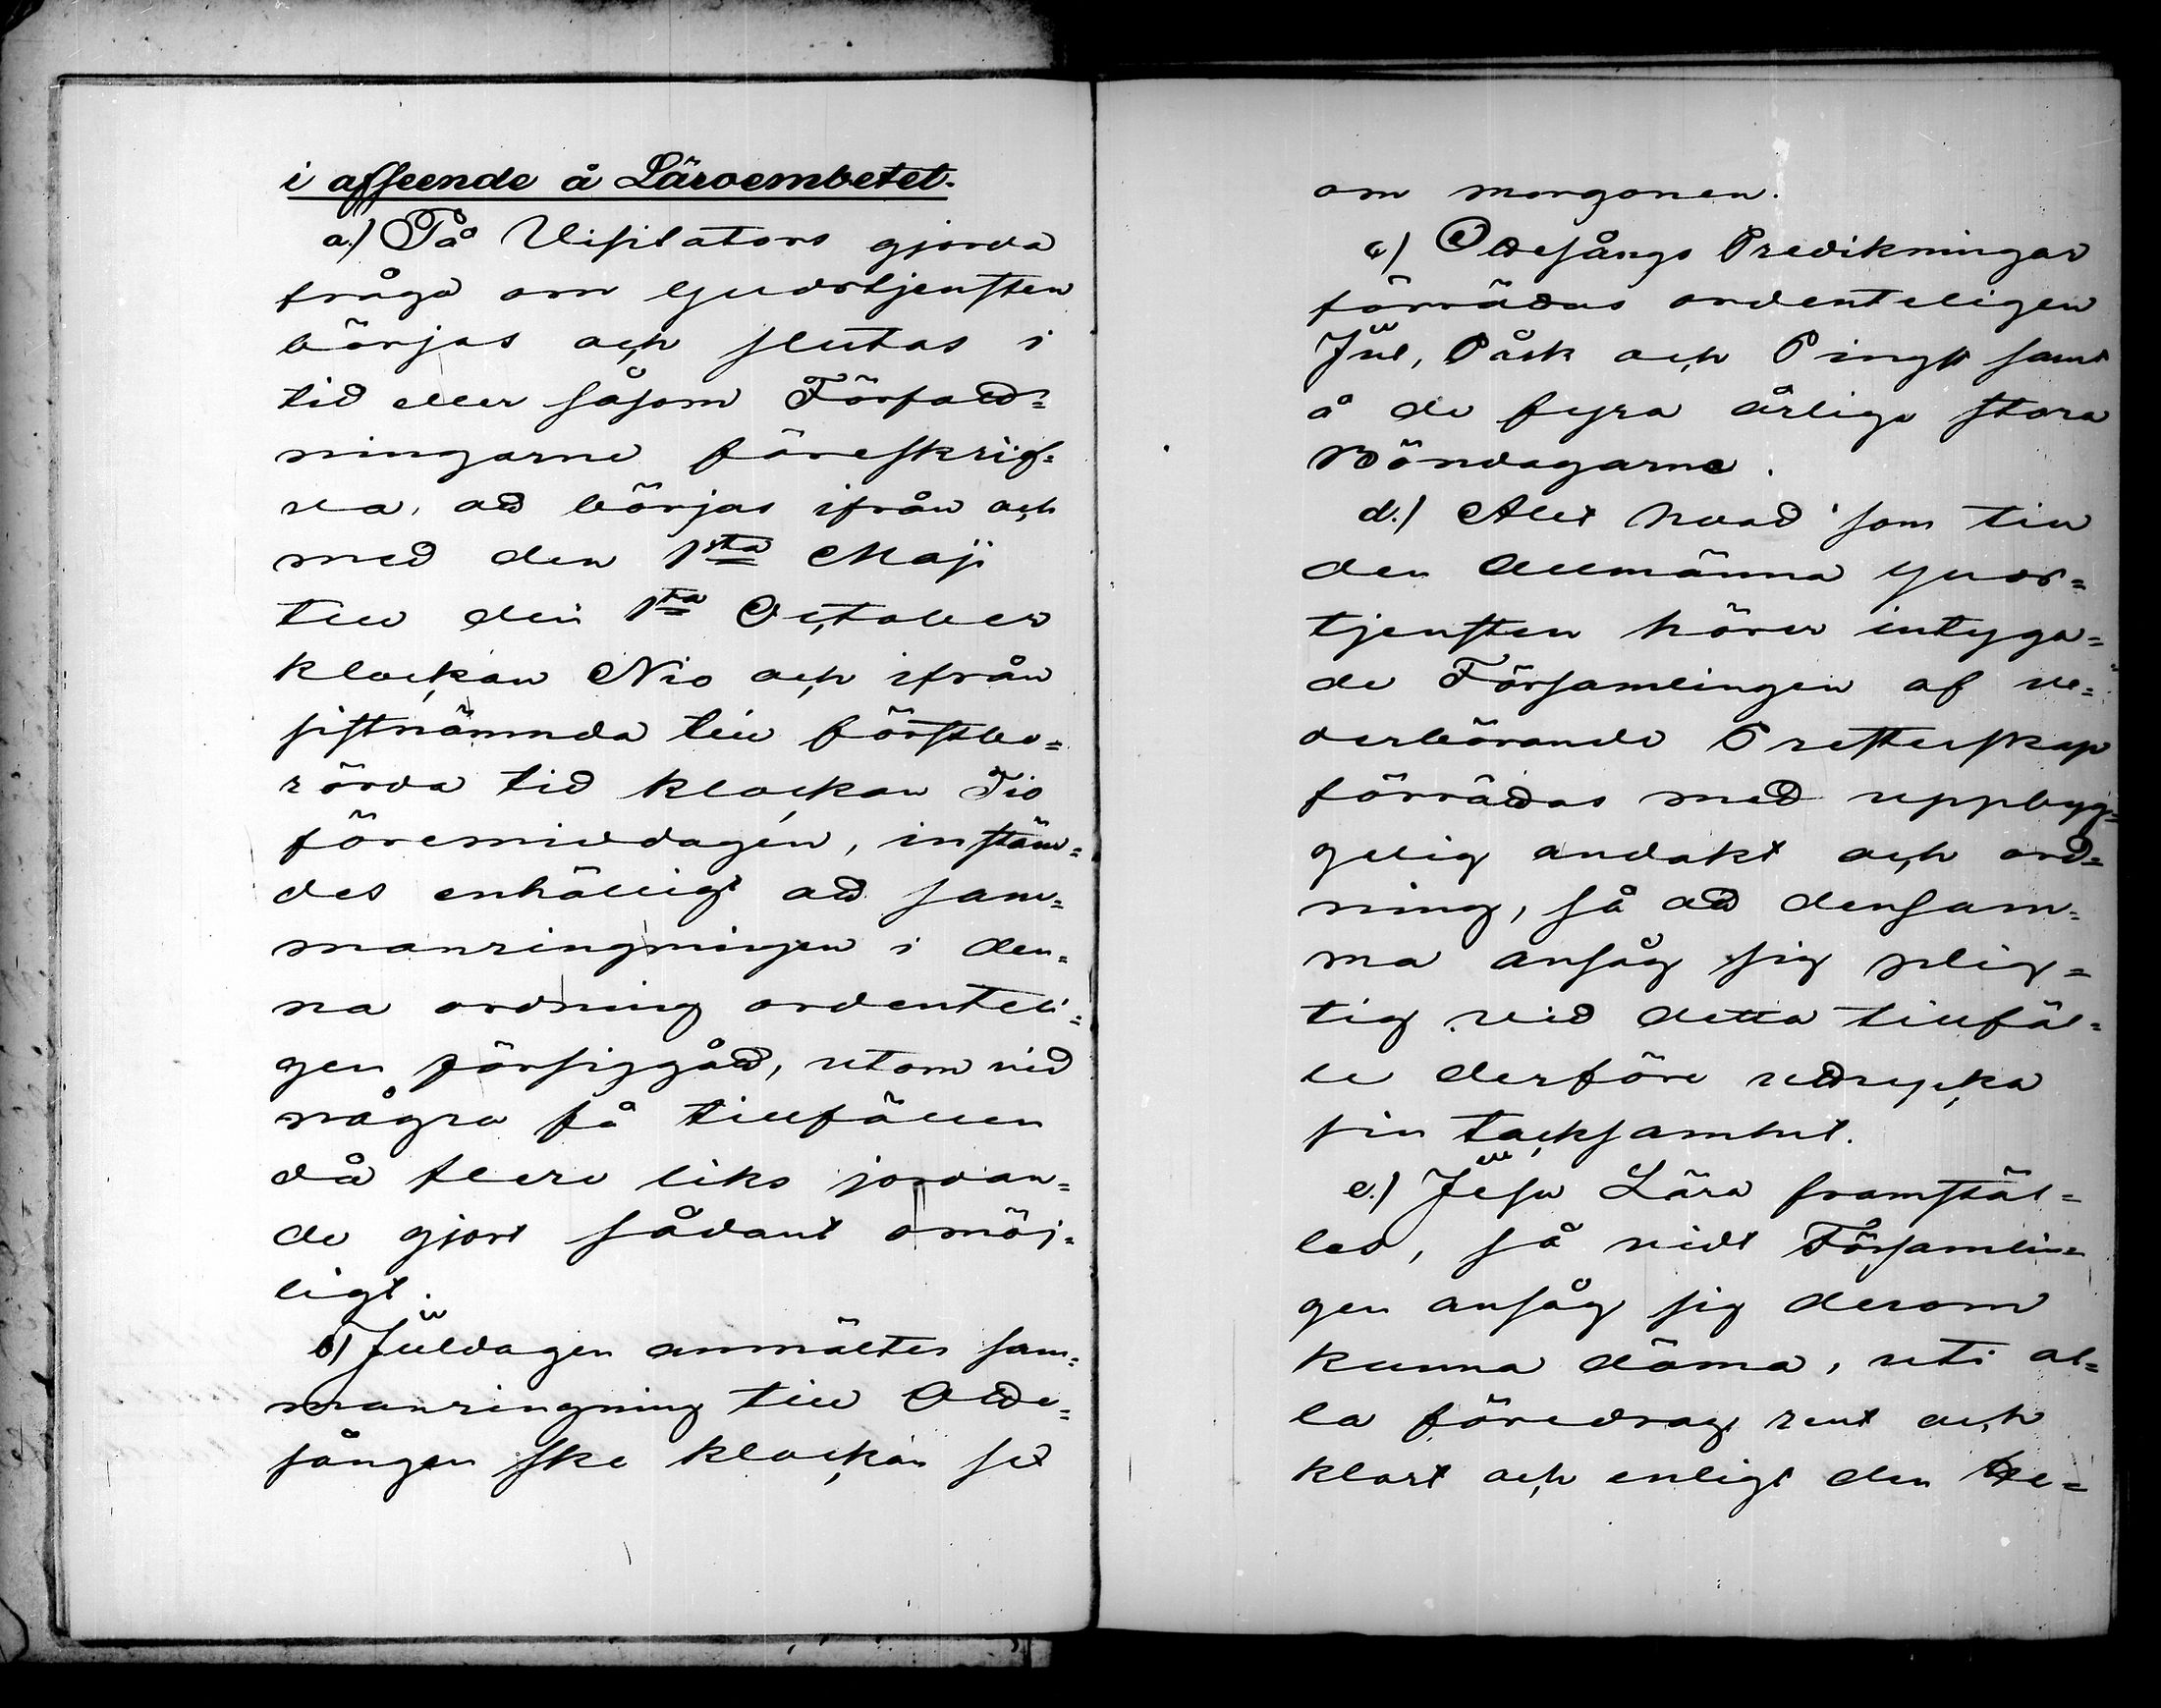 i afseende å Läroembetet.
a.) På Visitators gjorda
fråga om Gudstjensten
börjas och slutas i
tid eller såsom Författ=
ningarne föreskrif=
va, att börjas ifrån och
med den 1sta Maji
till den 1sta October
klockan Nio och ifrån
sistnämnda till förstbe=
rörda tid klockan Tio
föremiddagen, instäm=
des enhälligt att sam=
manringningen i den=
na ordning ordenteli=
gen försiggått, utom vid
några få tillfällen
då flere liks jordan=
de gjort sådant omöj=
ligt.
b) Juldagen anmältes sam=
manringning till Otte=
sången ske klockan sex
om morgonen.
c) Ottesångs Predikningar
förrättas ordenteligen
Jul, Påsk och Pingst samt
å de fyra årliga stora
Böndagarne.
d.) Allt hvad som till
den allmänna Guds=
tjensten hörer intyga=
de Församlingen af ve=
derbörande Presterskap
förrättas med uppbyg=
gelig andakt och ord=
ning, så att densam=
ma ansåg sig plig=
tig vid detta tillfäl=
le derföre uttrycka
sin tacksamhet.
e.) Jesu Lära framstäl=
les, så vidt Församlin=
gen ansåg sig derom
kunna döma, uti al=
la föredrag rent och
klart och enligt den be=